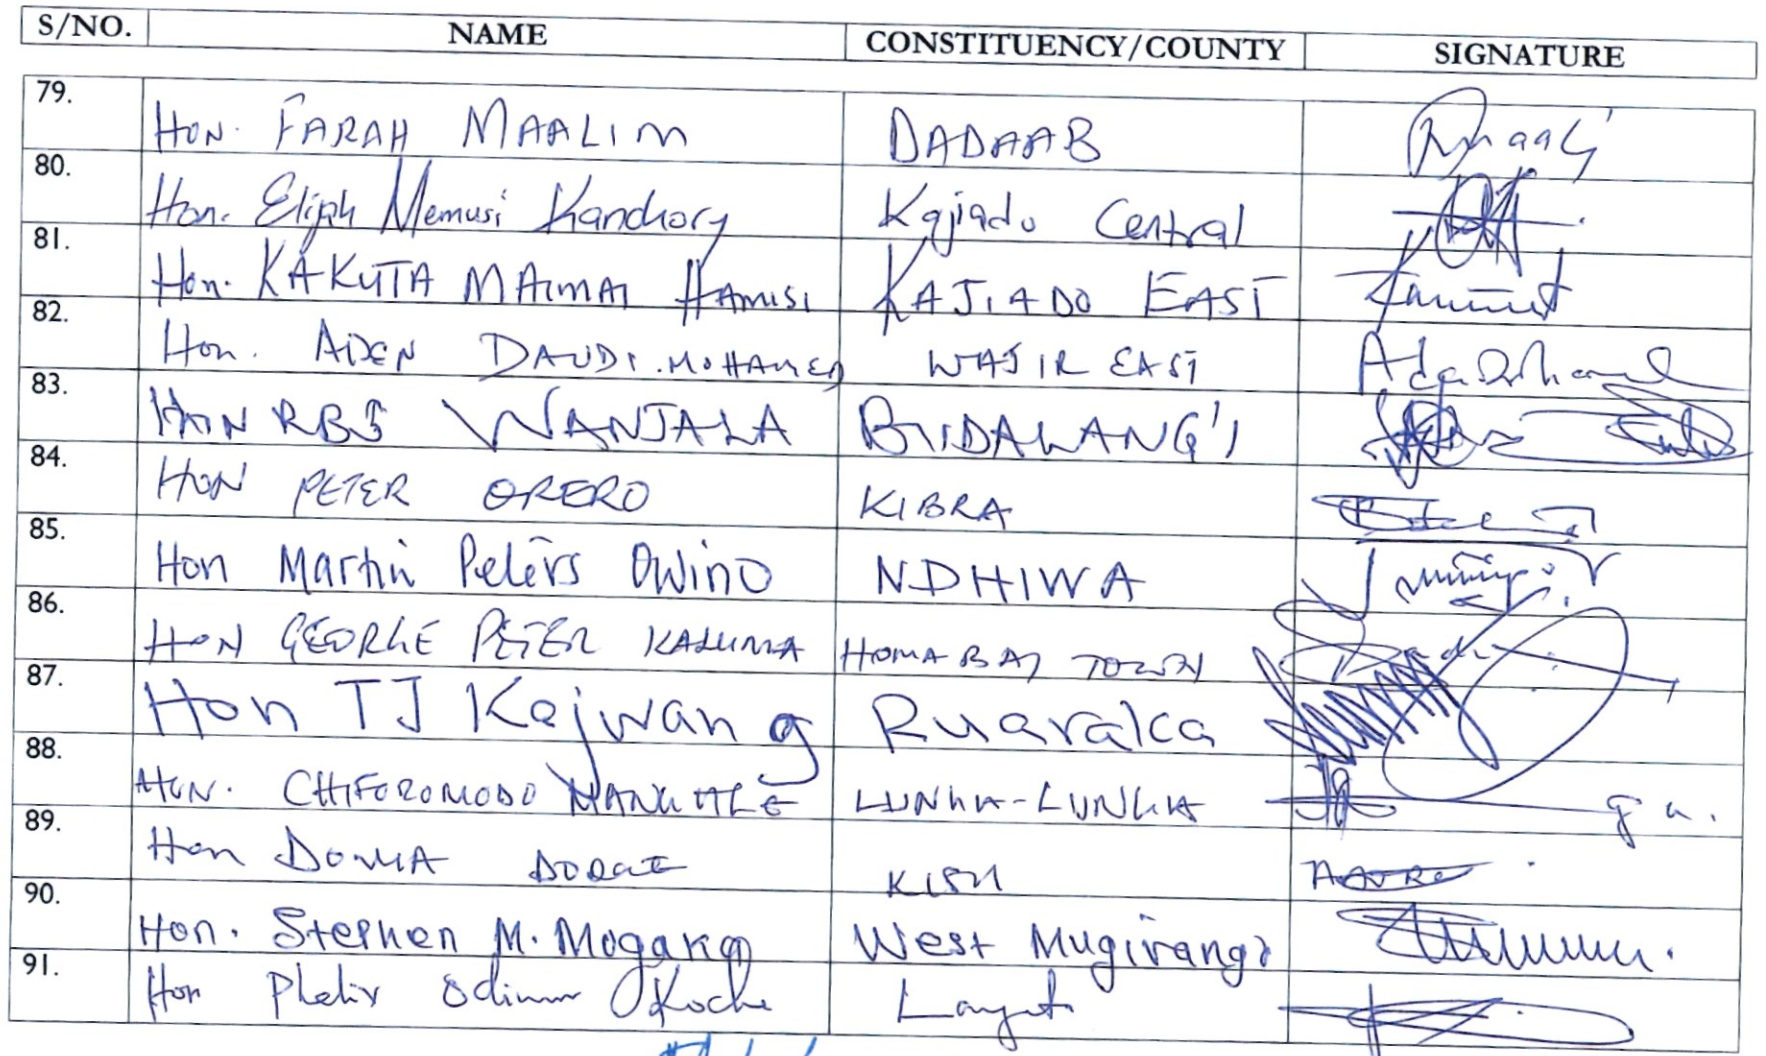 S/NO. NAME CONSTITUENCY/COUNTY SIGNATURE
79. HON. FARAH MAALIM DADAAB
80. Hon. Elijah Memusi Kanchory Kajiado Central
81. Hon. KAKUTA MAIMAI HAMISI KAJIADO EAST
82. Hon. ADEN DAUDI.MOHAMED WAJIR EAST
83. HON RBS WANJALA BUDALANG'I
84. HON PETER ORERO KIBRA
85. Hon Martin Peters Owino NDHIWA
86. HON GEORGE PETER KALUMA HOMA BAY TOWN
87. Hon TJ Kajwang Ruaraka
88. HON. CHIFOROMODO MANGALE LUNGA-LUNGA
89. Hon DONYA KISII
90. Hon. Stephen M. Mogaka West Mugirango
91. Hon